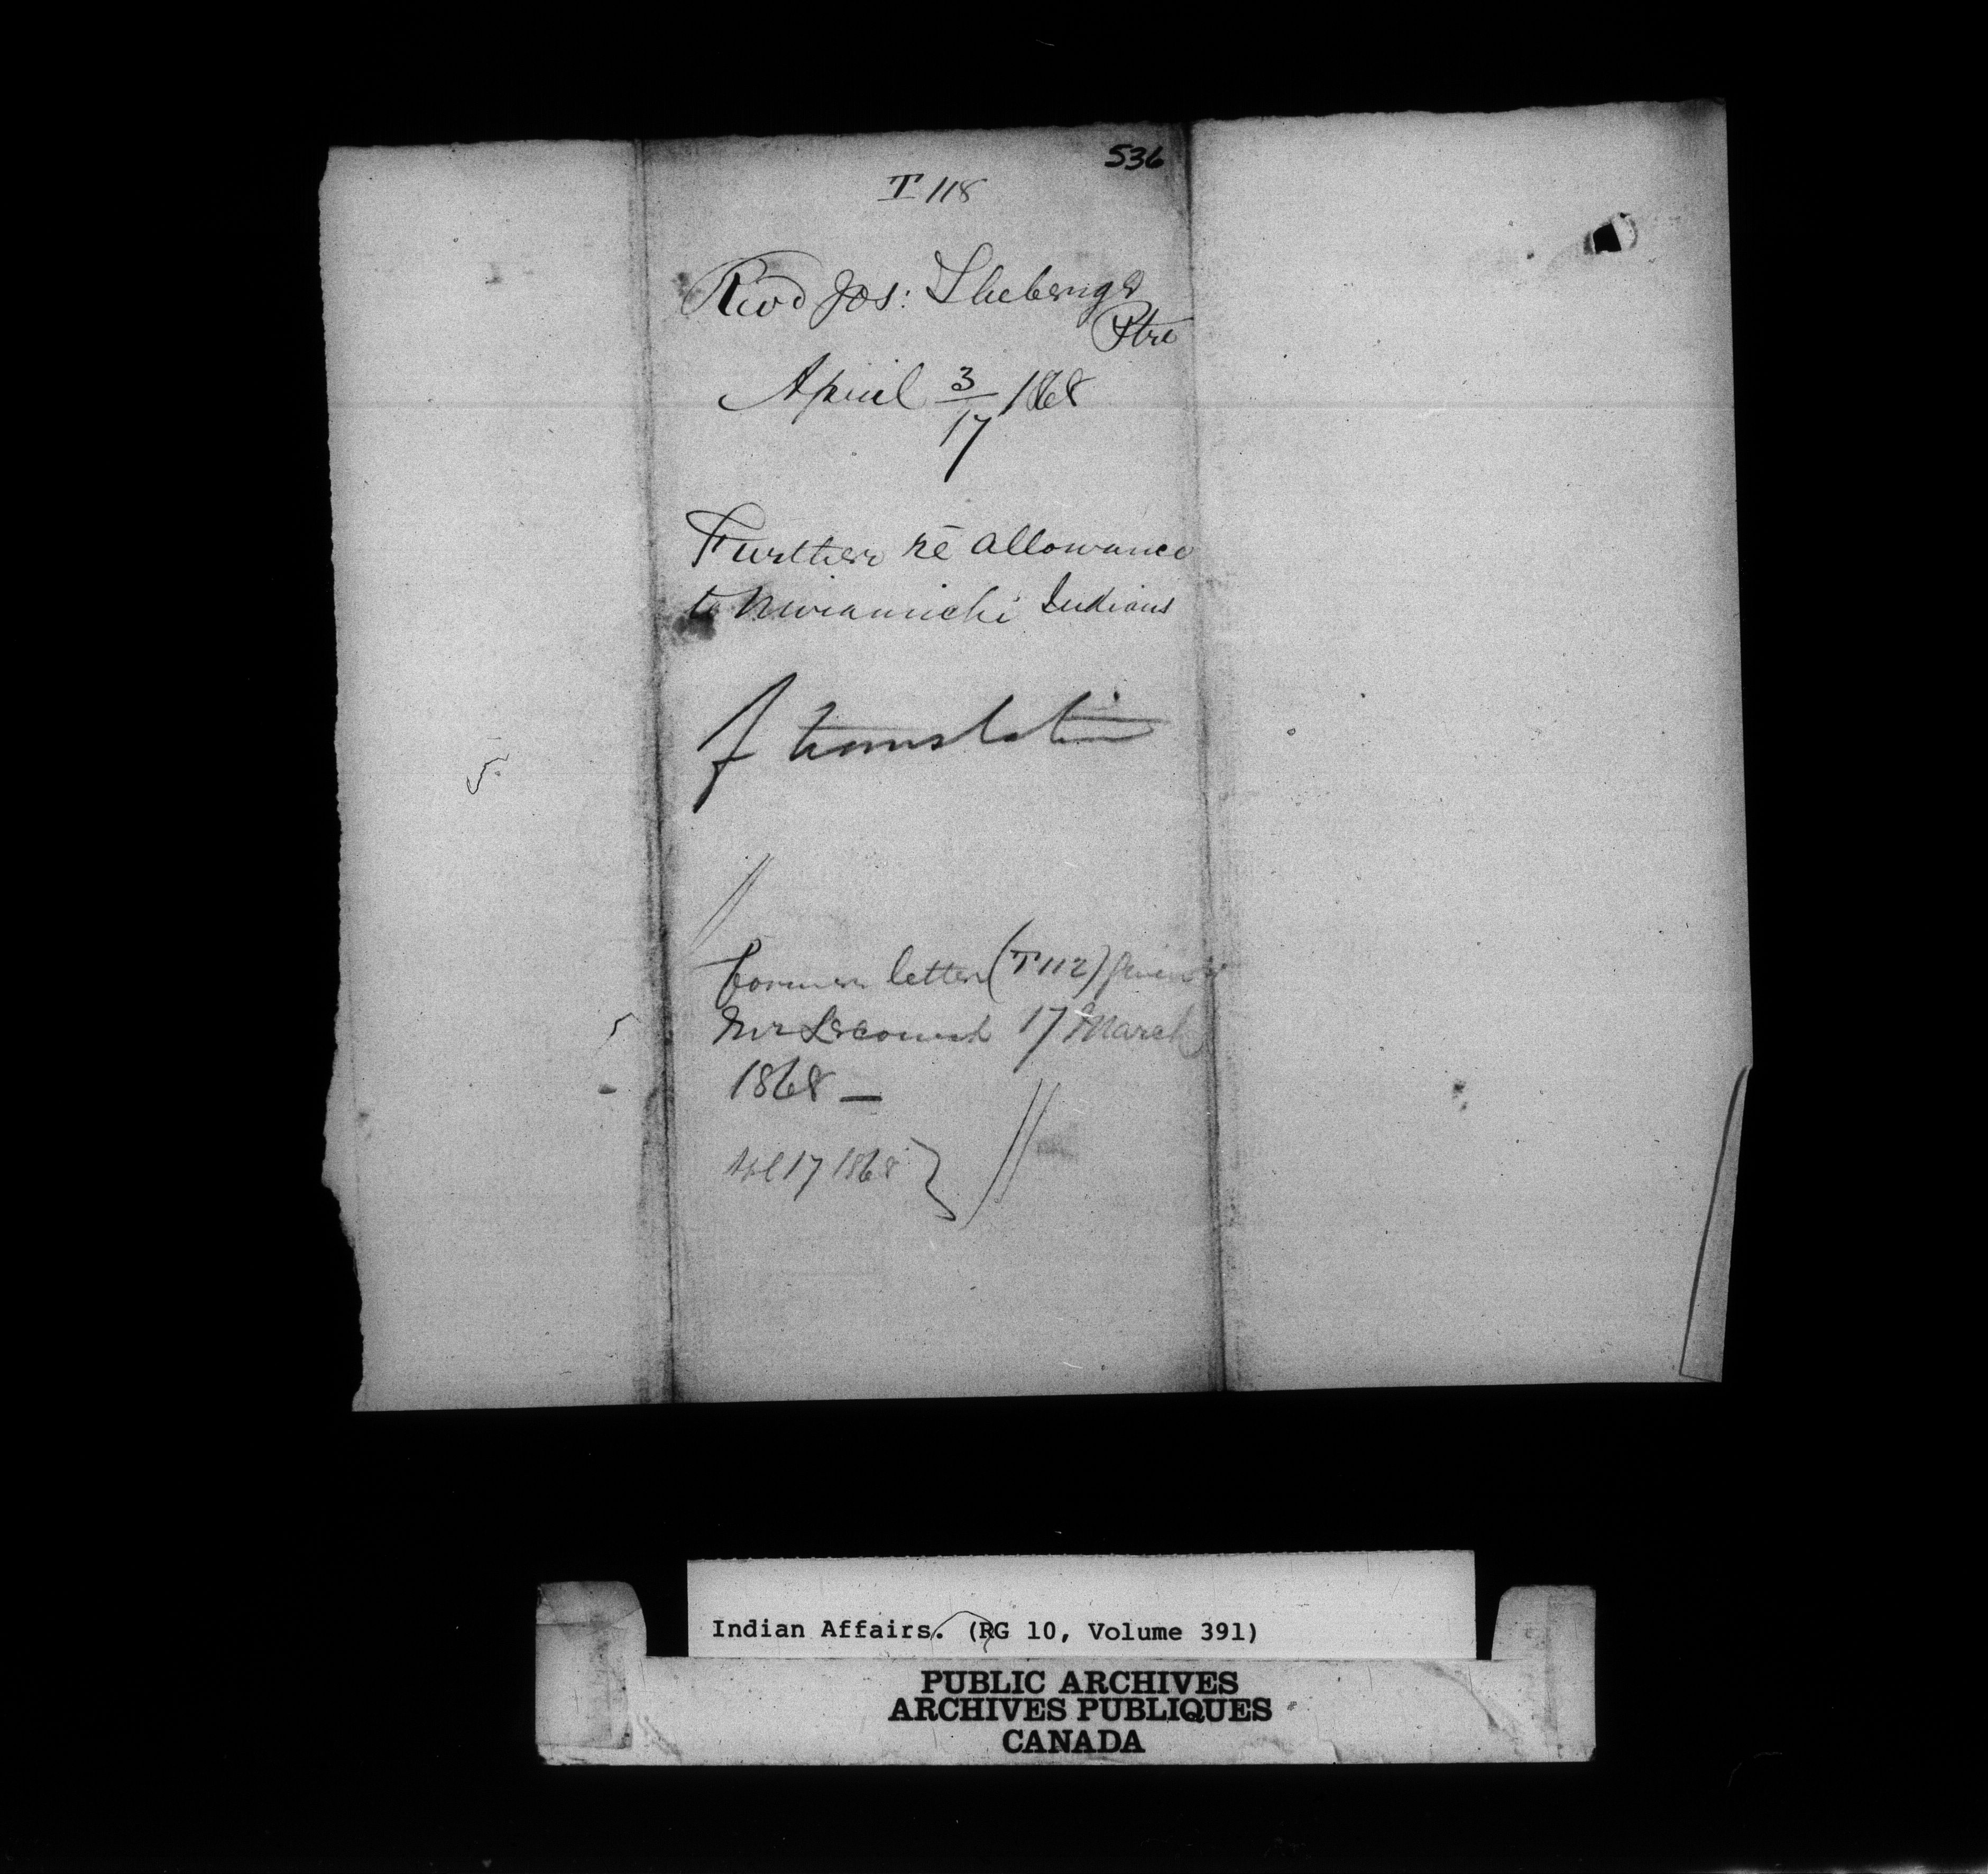 536
T 118
Revd Jos: Theberge
Ptre
April 3/17 1868
Further re allowance
to Miramichi Indians
f translation
Former letter (T 112) given
Mr 17 March
1868 —
Apl 17 1868
Indian Affairs. (RG 10, Volume 391)
PUBLIC ARCHIVES
ARCHIVES PUBLIQUES
CANADA